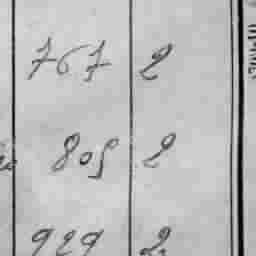 767 2
805 2
929 2